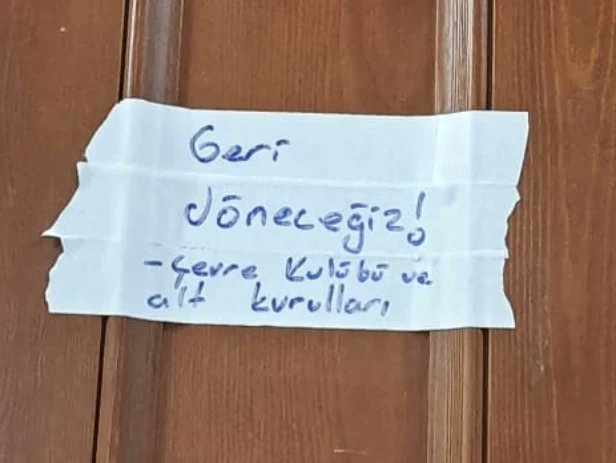 Geri
döneceğiz!
- Çevre Kulübü ve
alt kurulları